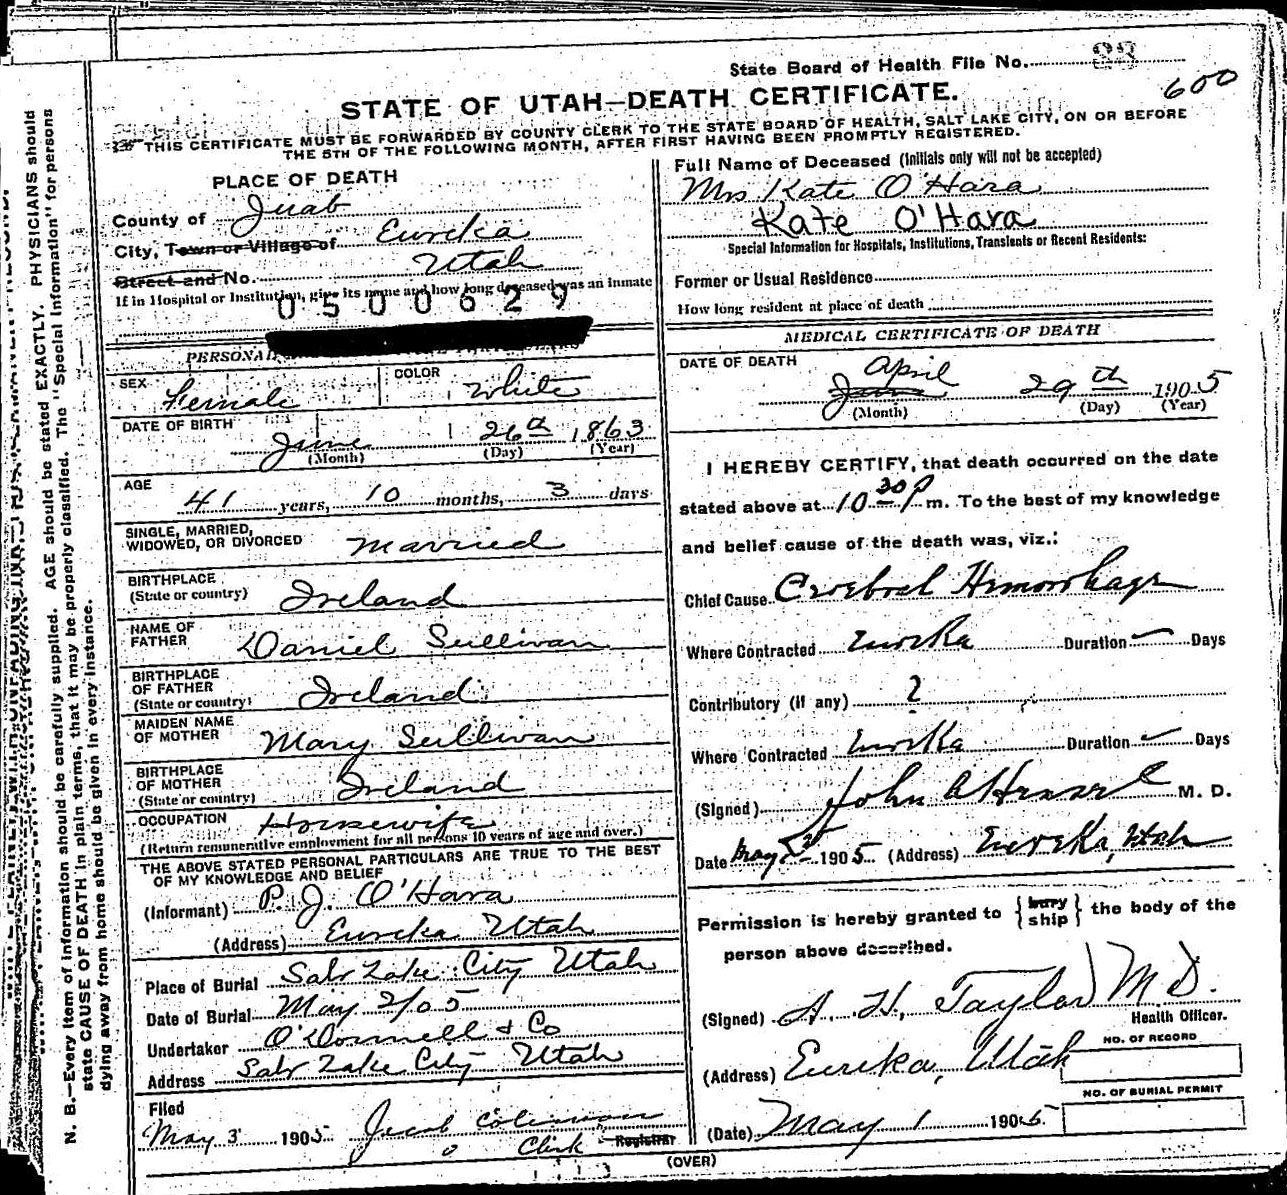 State Board of Health File No.
600
STATE OF UTAH—DEATH CERTIFICATE.
THIS CERTIFICATE MUST BE FORWARDED BY COUNTY CLERK TO THE STATE BOARD OF HEALTH, SALT LAKE CITY, ON OR BEFORE
THE 5TH OF THE FOLLOWING MONTH, AFTER FIRST HAVING BEEN PROMPTLY REGISTERED.
PLACE OF DEATH
County of Juab
City, Town or Village of Eureka
Street and No. Utah
If in Hospital or Institution, give its name and how long deceased was an inmate
0500629
PERSONAL
SEX Female COLOR White
DATE OF BIRTH June 26th 1863
(Month) (Day) (Year)
AGE 41 years, 10 months, 3 days
SINGLE, MARRIED,
WIDOWED, OR DIVORCED Married
BIRTHPLACE
(State or country) Ireland
NAME OF
FATHER Daniel Sullivan
BIRTHPLACE
OF FATHER
(State or country) Ireland
MAIDEN NAME
OF MOTHER Mary Sullivan
BIRTHPLACE
OF MOTHER
(State or country) Ireland
OCCUPATION Housewife
(Return remunerative employment for all persons 10 years of age and over.)
THE ABOVE STATED PERSONAL PARTICULARS ARE TRUE TO THE BEST
OF MY KNOWLEDGE AND BELIEF
(Informant) P. J. O'Hara
(Address) Eureka Utah
Place of Burial Salt Lake City Utah
Date of Burial May 2/05
Undertaker O'Donnell & Co
Address Salt Lake City Utah
Filed
May 3 1905
Clerk Registrar
(OVER)
Full Name of Deceased (Initials only will not be accepted)
Mrs Kate O'Hara
Kate O'Hara
Special Information for Hospitals, Institutions, Transients or Recent Residents:
Former or Usual Residence
How long resident at place of death
MEDICAL CERTIFICATE OF DEATH
DATE OF DEATH April
June 29th 1905
(Month) (Day) (Year)
I HEREBY CERTIFY, that death occurred on the date
stated above at 10 30 P m. To the best of my knowledge
and belief cause of the death was, viz.:
Chief Cause Cerebral Hemorrhage
Where Contracted Eureka Duration Days
Contributory (if any) ?
Where Contracted Eureka Duration Days
(Signed) John M. D.
Date May 1905 (Address) Eureka, Utah
Permission is hereby granted to {bury ship} the body of the
person above described.
(Signed) A. H. Taylor M D.
Health Officer.
NO. OF RECORD
(Address) Eureka, Utah
NO. OF BURIAL PERMIT
(Date) May 1 1905
N. B.—Every item of information should be carefully supplied. AGE should be stated EXACTLY. PHYSICIANS should
state CAUSE OF DEATH in plain terms, that it may be properly classified. The "Special Information" for persons
dying away from home should be given in every instance.